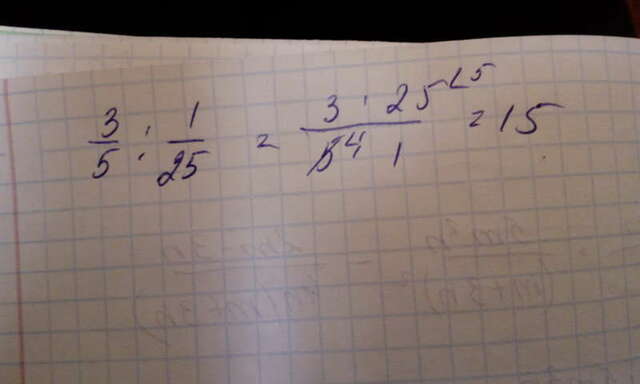 3/5 : 1/25 = 3 · 25 5 / 5 4 1 = 15